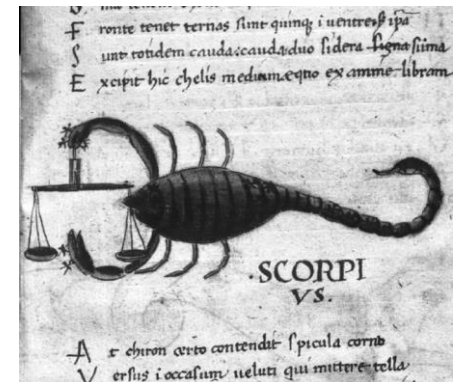 F ronte tenet ternas sunt quinq; i uentre &
S unt totidem cauda: cauda duo sidera signa
E xcipit hic chelis medium eqtio ex amine libram
.SCORPI
VS.
A t chiron certo contendit spicula corno
V ersus i occasum ueluti qui mittere tella